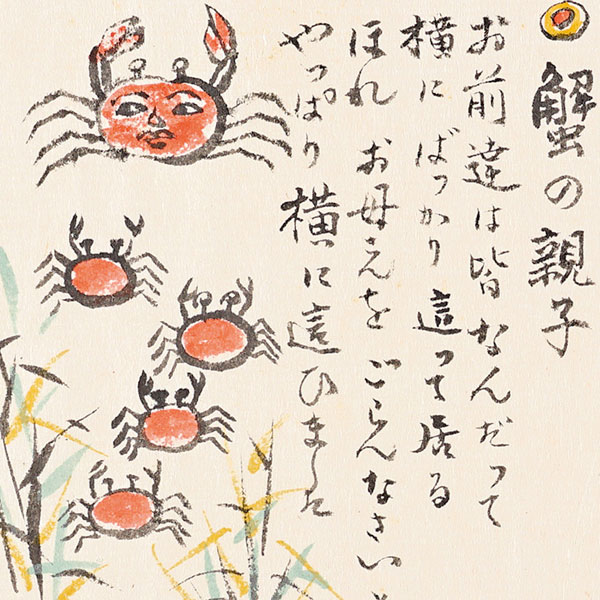 蟹の親子
お前達は皆なんだって
横にばっかり這って居る
ほれ お母さんを ごらんなさい と
やっぱり 横に這ひました